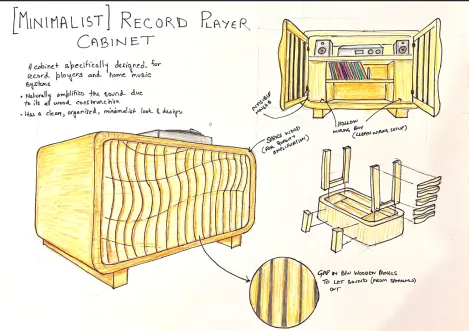 [MINIMALIST] RECORD PLAYER
CABINET
A cabinet specifically designed for
record players and home music
systems
• Naturally amplifies the sound due
to its all wood construction
• Has a clean, organized, minimalist look & design
INVISIBLE
HINGES
SPRUCE WOOD
(FOR QUALITY
AMPLIFICATION)
HOLLOW
WIRING BOX
(CLEAN WIRING SETUP)
GAP IN B/W WOODEN PANELS
TO LET SOUND (FROM SPEAKERS)
OUT